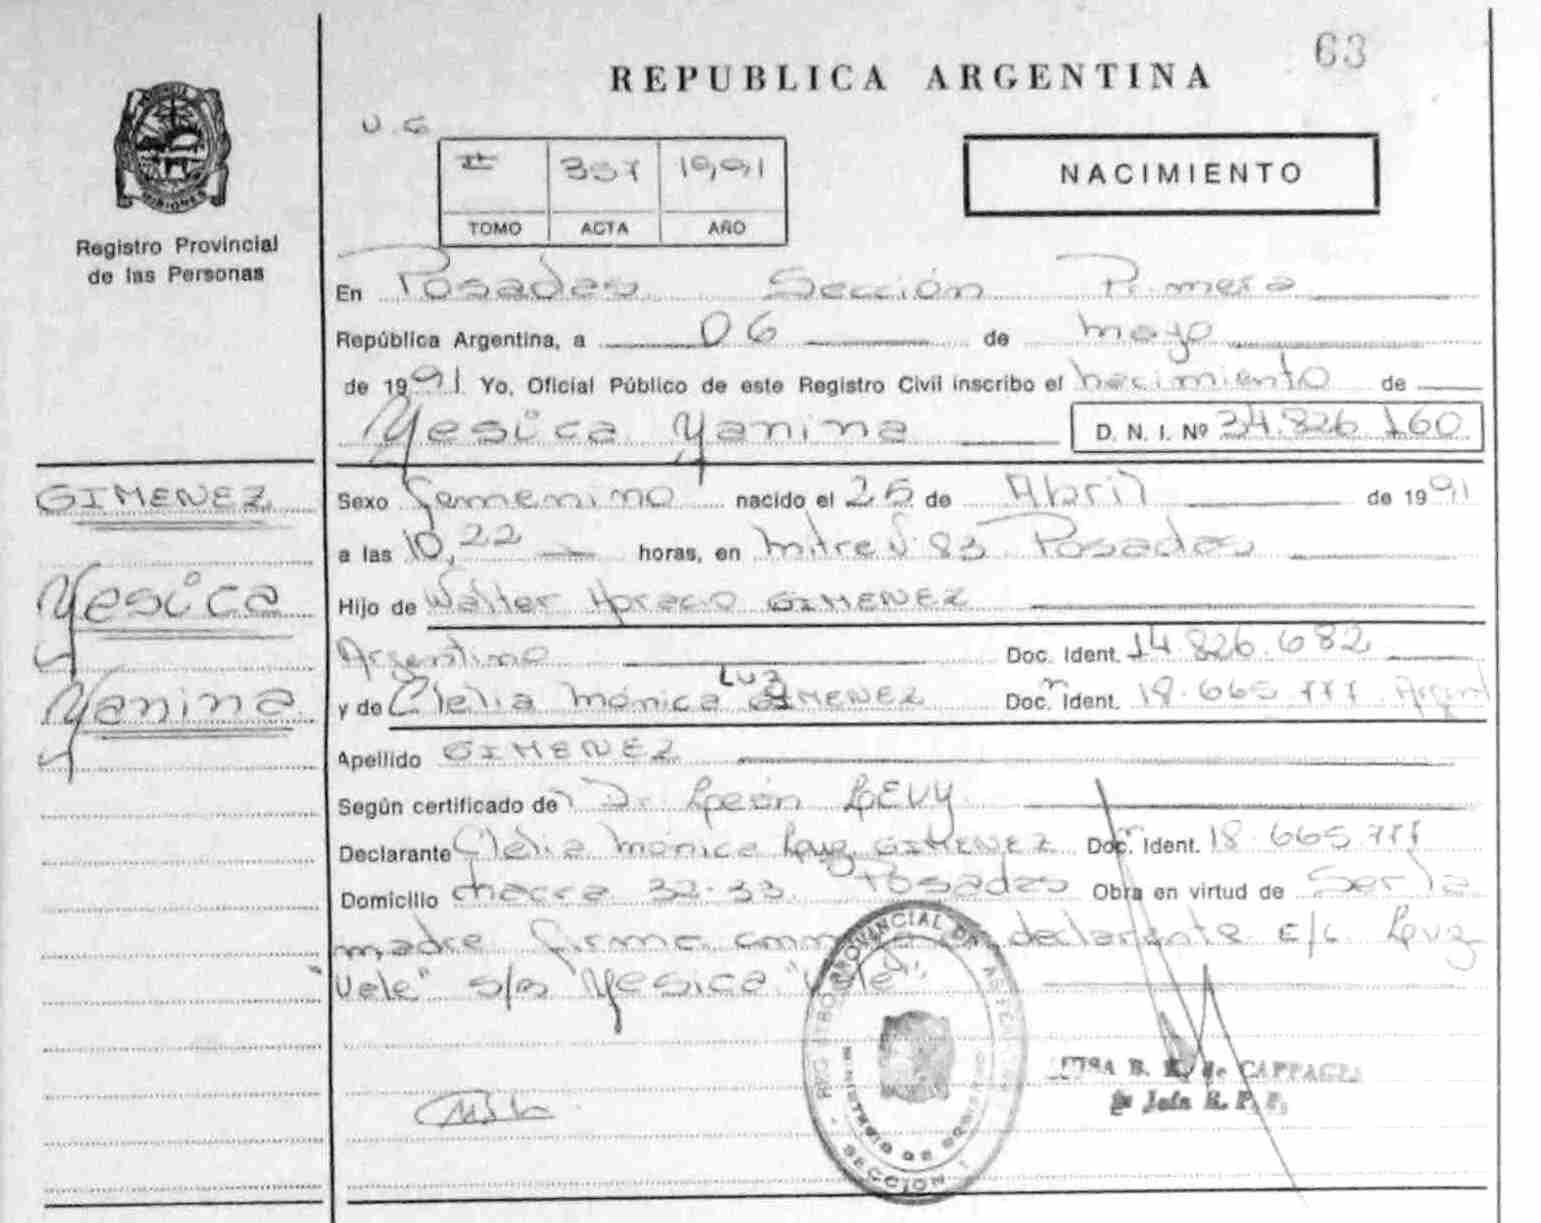 63
REPUBLICA ARGENTINA
U. G
II 357 19,91
TOMO ACTA AÑO
NACIMIENTO
MISIONES
Registro Provincial
de las Personas
En Posadas Sección Primera
República Argentina, a 06 de mayo
de 1991 Yo, Oficial Público de este Registro Civil inscribo el nacimiento de
Yesica Yanina D. N. I. Nº 34.826.160
GIMENEZ
Yesica
Yanina
Sexo Femenino nacido el 25 de Abril de 1991
a las 10,22 horas, en mitre N 83 Posadas
Hijo de Walter Horacio GIMENEZ
Argentino Doc. Ident. 14.826.682
Luz
y de Clelia Mónica GIMENEZ Doc. Ident. 18.665.777
Apellido GIMENEZ
Según certificado de Dr León LEVY
Declarante Clelia Mónica Luz GIMENEZ Doc. Ident. 18.665.777
Domicilio chacra 32-33 Posadas Obra en virtud de Ser la
madre firma declarante E/L Luz
"Vale" s/b Yesica "Vale"
REGISTRO PROVINCIAL DE
MINISTERIO DE GOBIERNO
SECCION 1
B. de
Jefa R. P. P.